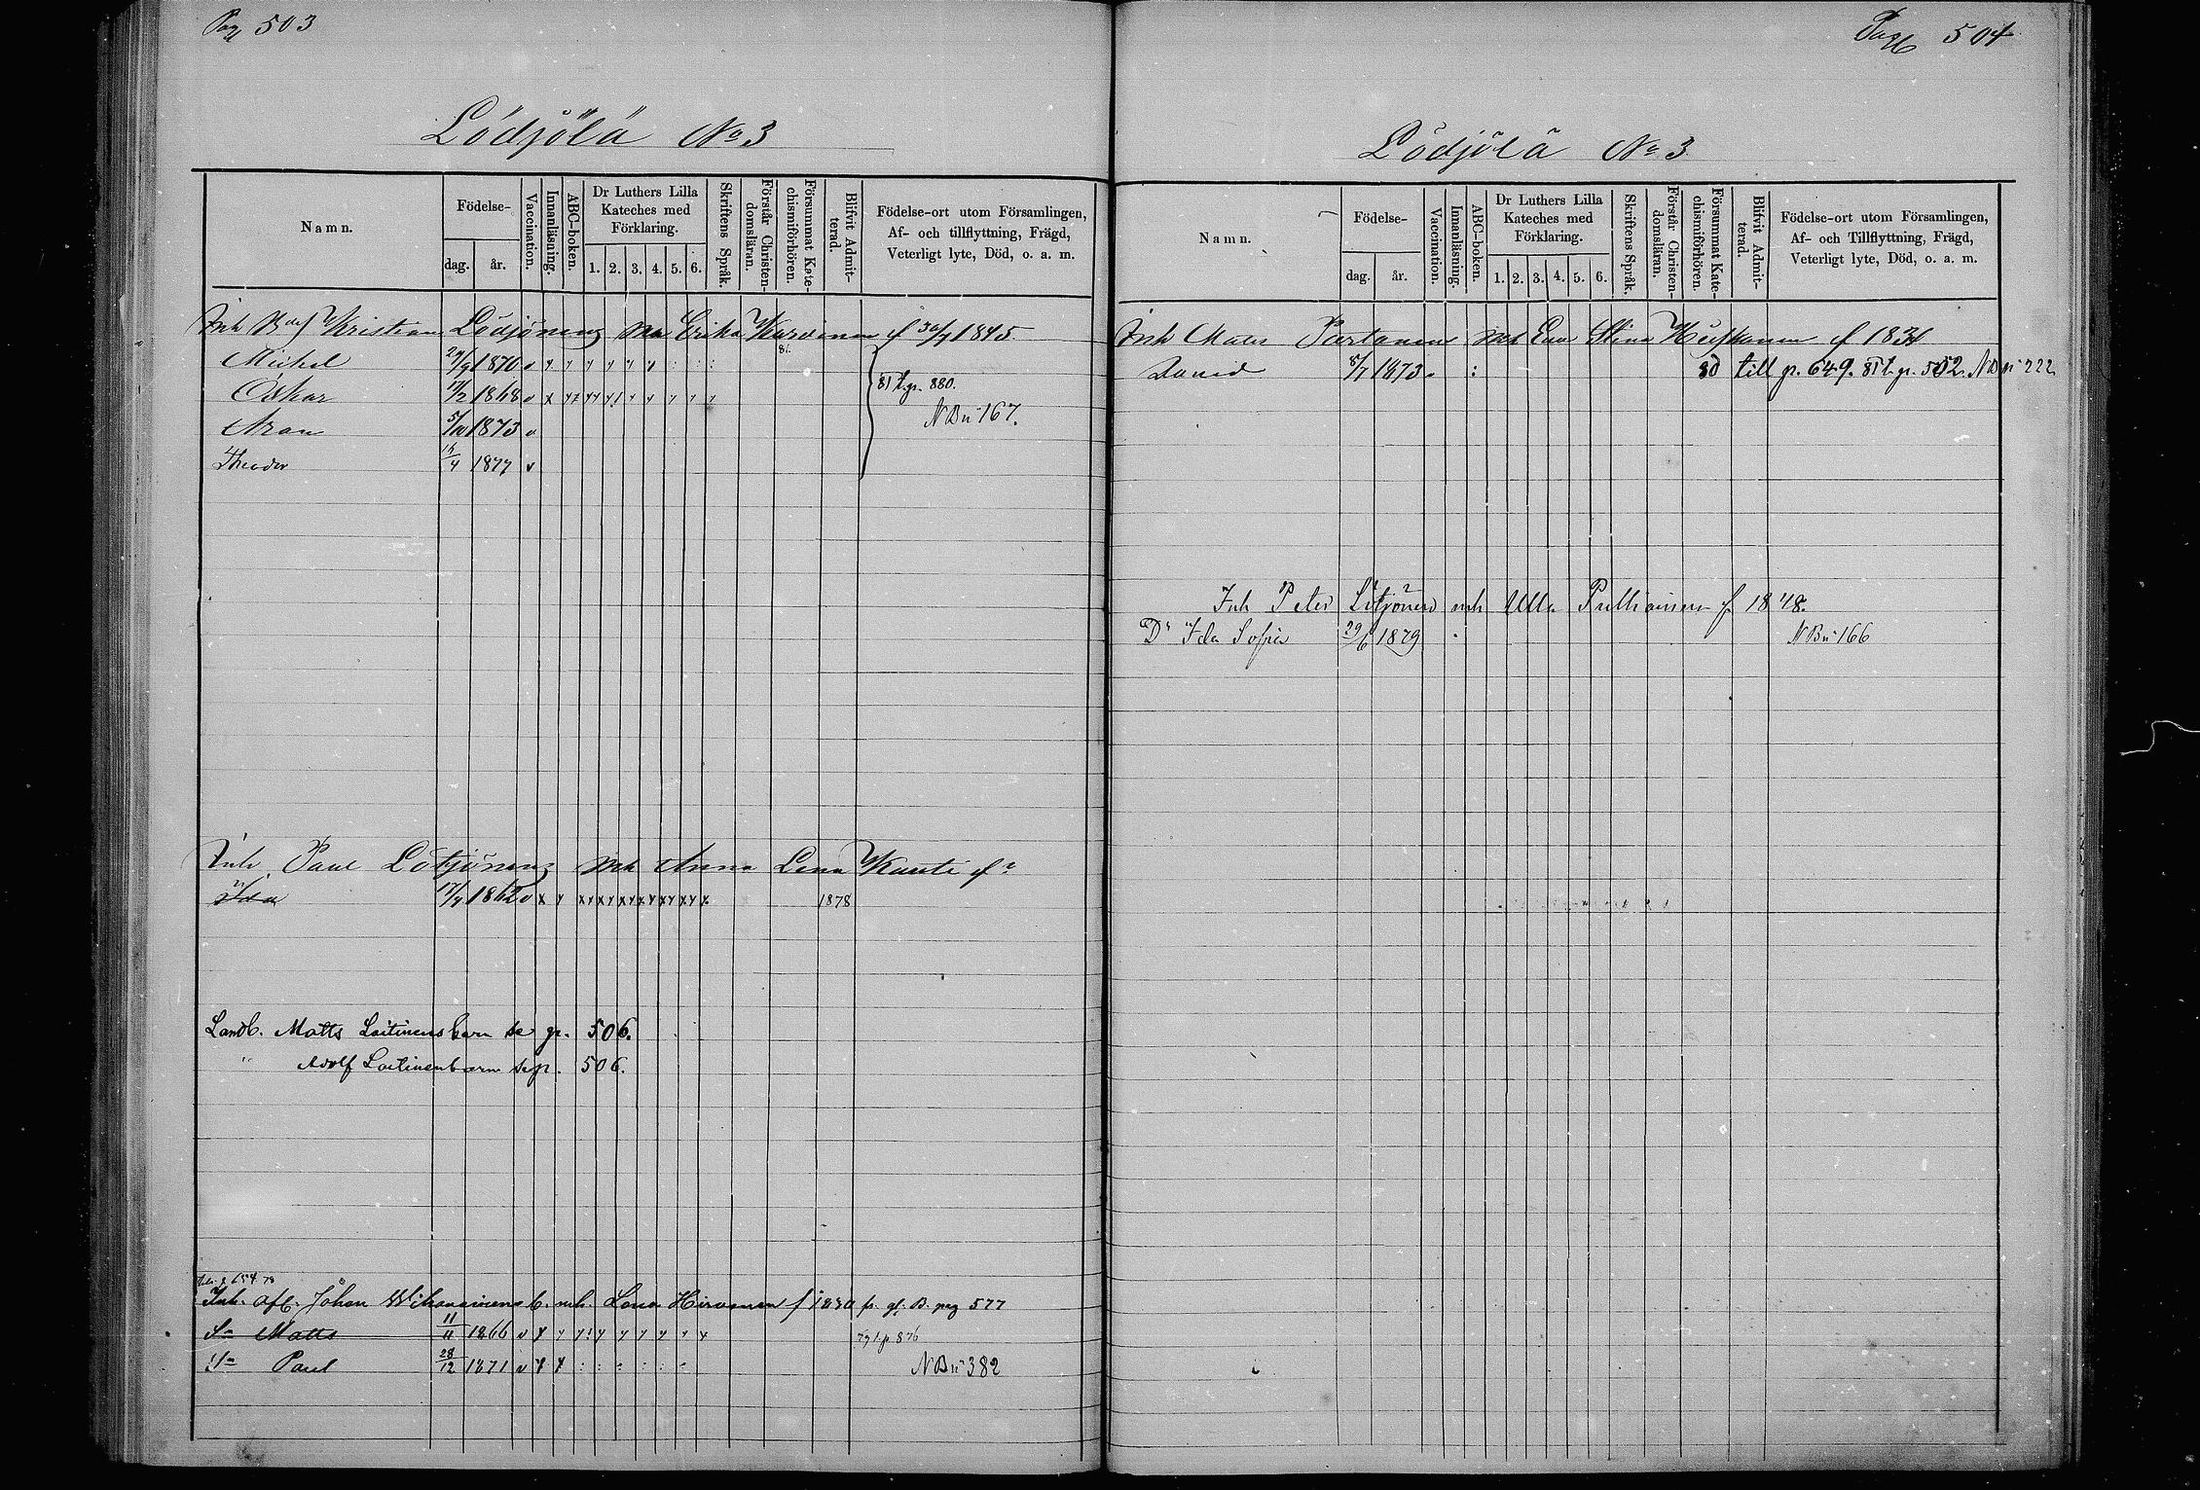 Pag 503
Lödjölä No 3
Namn.
Födelse-
dag. år.
Vaccination.
Innanläsning.
ABC-boken.
Dr Luthers Lilla
Kateches med
Förklaring.
1. 2. 3. 4. 5. 6.
Skriftens Språk.
Förstår Christen-
domsläran.
Försummat Kate-
chismiförhören.
Blifvit Admit-
terad.
Födelse-ort utom Församlingen,
Af- och tillflyttning, Frägd,
Veterligt lyte, Död, o. a. m.
Inh Kristian Lödjönens mh Erika Karvinen f 30/7 1845.
Michel 29/9 1870
Oskar 17/2 1868
81 t. p. 880.
Aron 5/10 1873
NB n 167.
Theodor 15/4 1877
Inh. Paul Lötjönens mh Anna Lena Kauti f
Ida 17/7 1862 1878
Landb. Matts Laitinens barn se p. 506.
" Adolf Laitinen barn se p. 506.
Inh. afl. Johan Wikanainens b. mh. Lena Hirvonen f 1830 fr. gl. B. pag 577
Sn Matts 11/11 1866 79 t. p 876
Sn Paul 28/12 1871 NB n 382
Pag 504
Lödjölä No 3
Namn.
Födelse-
dag. år.
Vaccination.
Innanläsning.
ABC-boken.
Dr Luthers Lilla
Kateches med
Förklaring.
1. 2. 3. 4. 5. 6.
Skriftens Språk.
Förstår Christen-
domsläran.
Försummat Kate-
chismiförhören.
Blifvit Admit-
terad.
Födelse-ort utom Församlingen,
Af- och Tillflyttning, Frägd,
Veterligt lyte, Död, o. a. m.
Inh Mats Partanen mh Eva Stina f 1834
David 8/7 1873 80 till p. 649. 81 t. p. 502. NB n 222
Inh Peter Lötjönen mh Ulla Pulliainen f 1848.
Dr Ida Sofia 29/6 1879 NB n 166